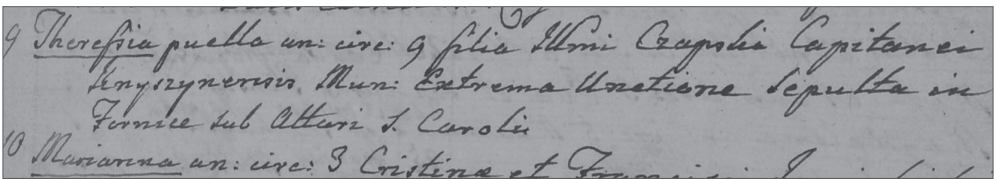 9 Theressia puella an: circ: 9 filia Illmi Czapski Capitanei
Knyszynensis Mun: Extrema Unctione Sepulta in
Fornice sub Altari S. Caroli
10 Marianna an: circ: 3 Cristinæ et